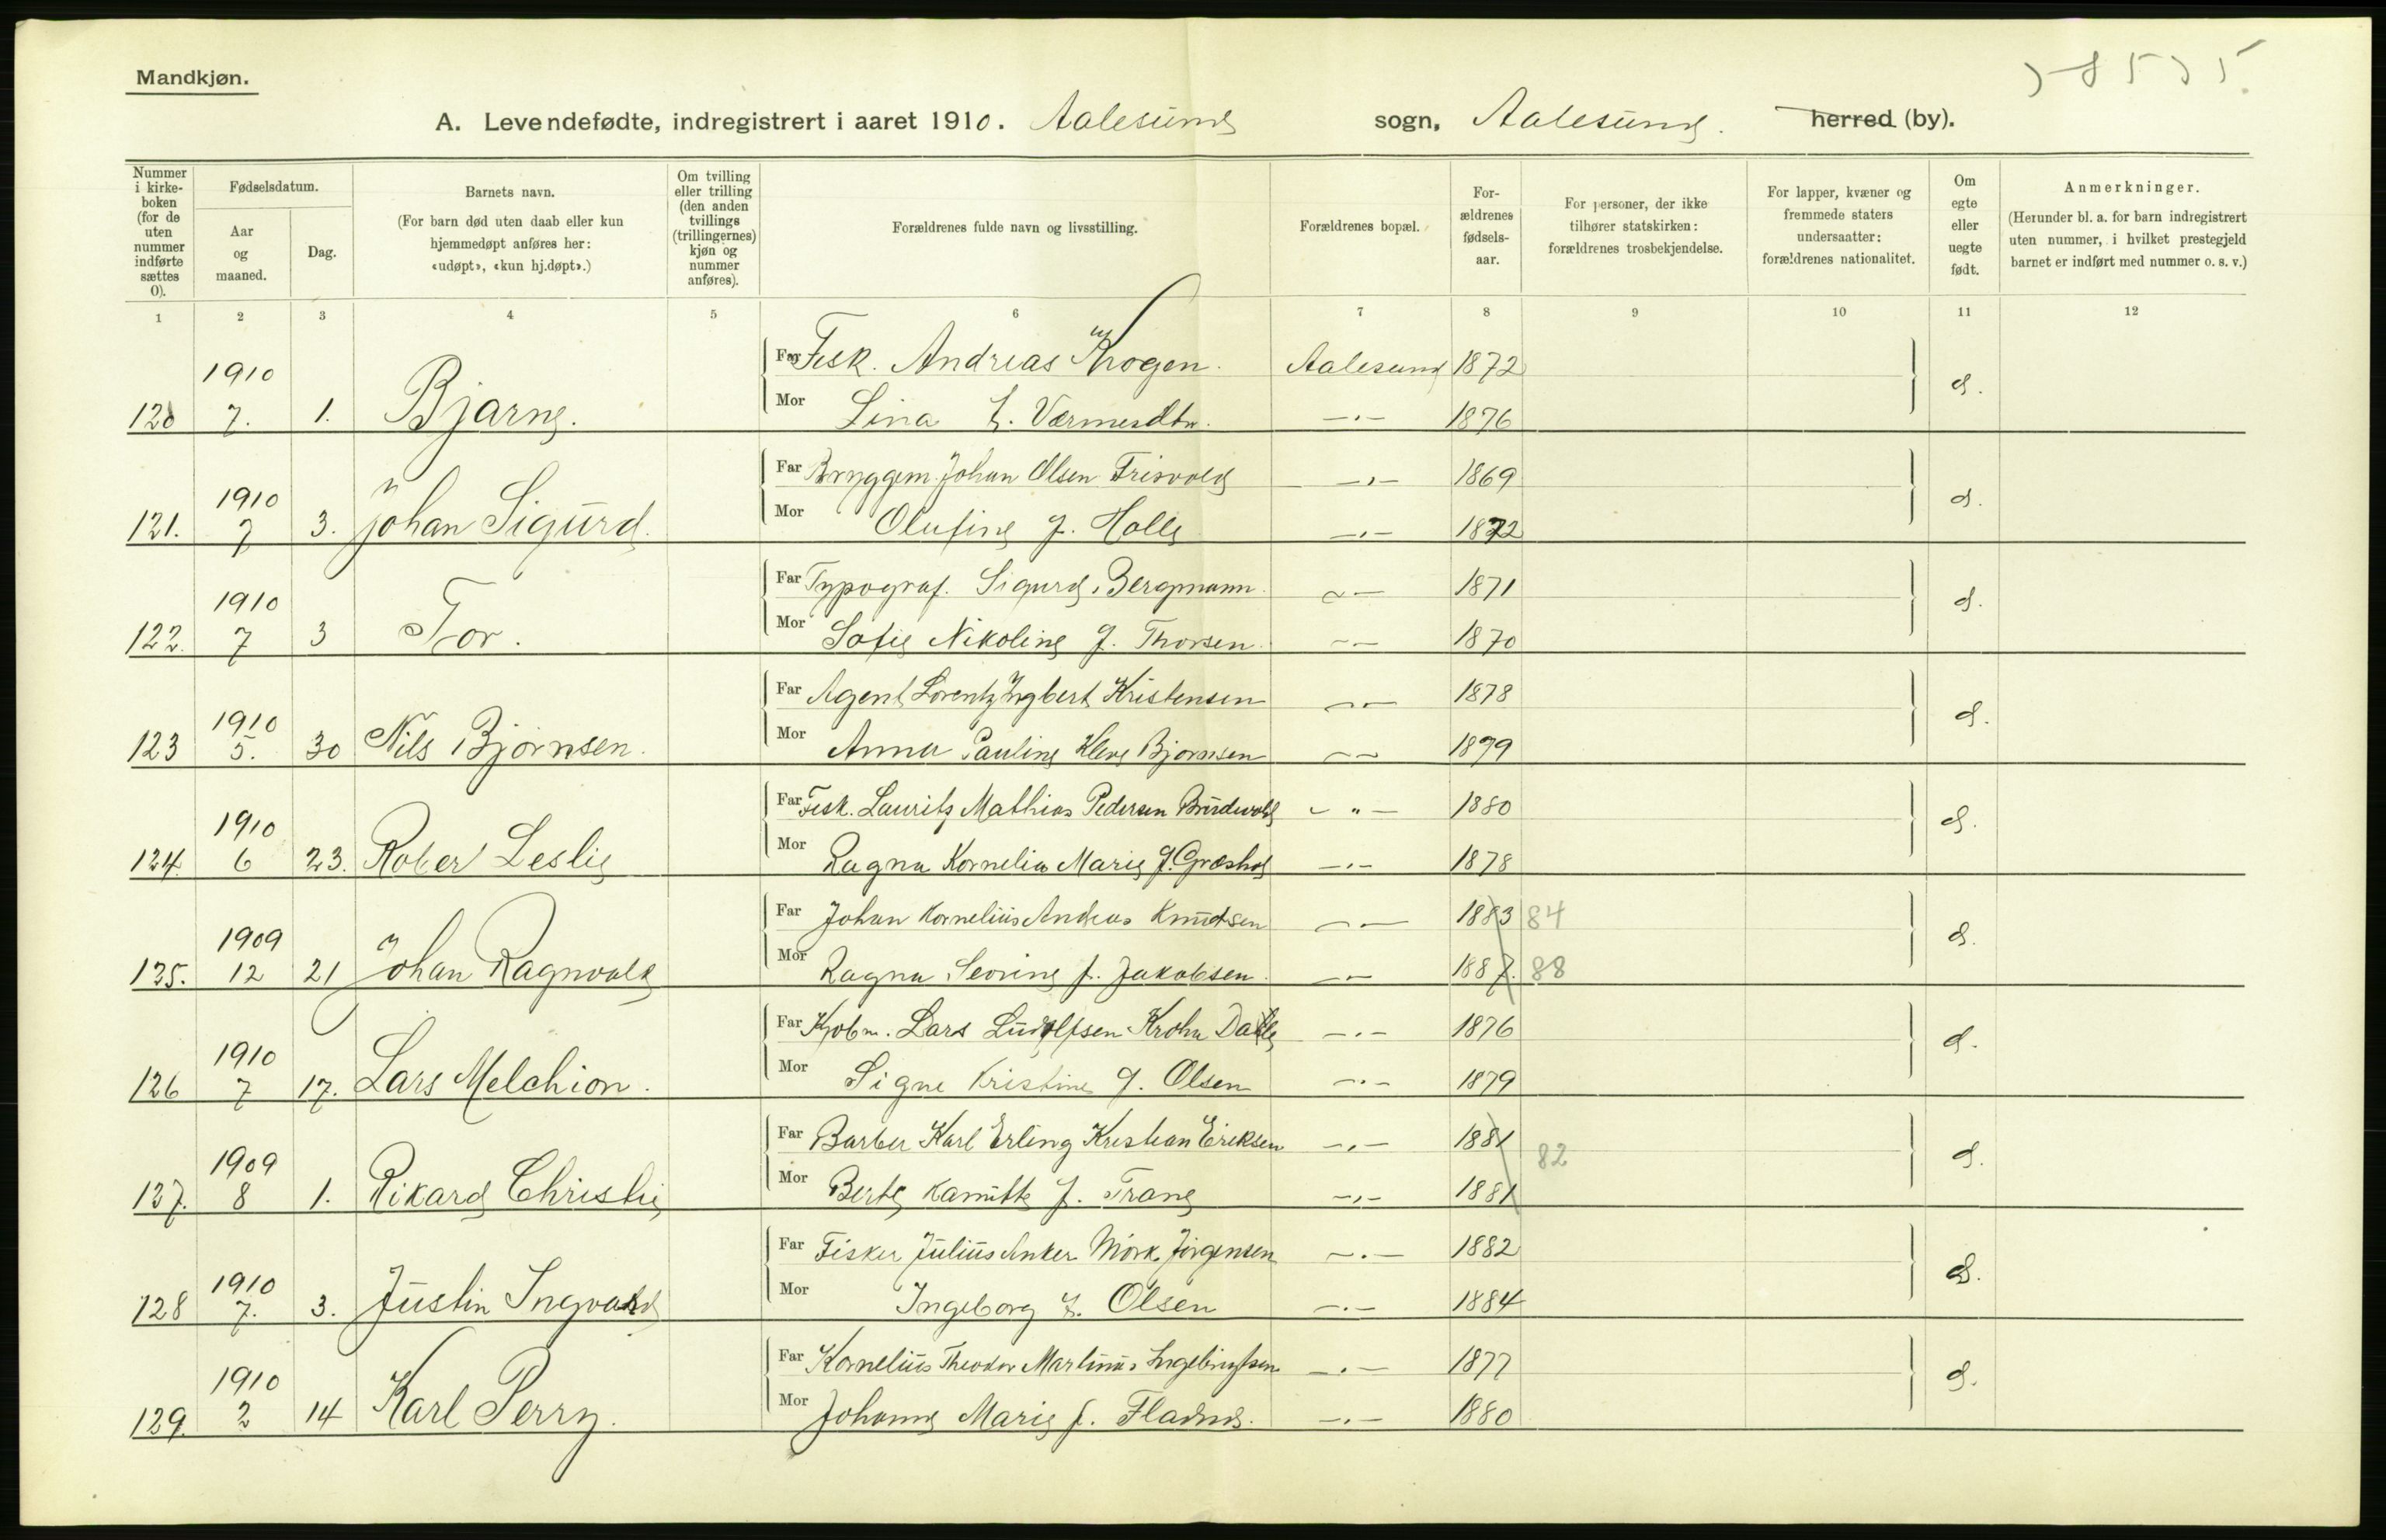 Mandkjøn.
A. Levendefødte, indregistrert i aaret 1910. Aalesund sogn, Aalesund. herred (by).
Nummer i kirke-boken (for de uten nummer indførte sættes 0).
Fødselsdatum.
Aar og maaned.
Dag.
Barnets navn.
(For barn død uten daab eller kun hjemmedøpt anføres her: «udøpt», «kun hj.døpt».)
Om tvilling eller trilling (den anden tvillings (trillingernes) kjøn og nummer anføres).
Forældrenes fulde navn og livsstilling.
Forældrenes bopæl.
For-ældrenes fødsels-aar.
For personer, der ikke tilhører statskirken: forældrenes trosbekjendelse.
For lapper, kvæner og fremmede staters undersaatter: forældrenes nationalitet.
Om egte eller uegte født.
Anmerkninger.
(Herunder bl. a. for barn indregistrert uten nummer, i hvilket prestegjeld barnet er indført med nummer o. s. v.)
1 2 3 4 5 6 7 8 9 10 11 12
Far Fisk. Andreas Krogen. Aalesund 1872
120 1910 7. 1. Bjarne. Mor Lina f. Værmesdtr. —"— 1876
Far Bryggem. Johan Olsen Frisvold —"— 1869
121. 1910 7 3. Johan Sigurd. Mor Olufine f. Holle —"— 1872
Far Typograf. Sigurd Bergmann. —"— 1871
122. 1910 7 3 Tor. Mor Sofie Nikoline f. Thorsen. —"— 1870
Far Agent Lorentz Ingbert Kristensen —"— 1878
123 1910 5. 30 Nils Bjørnsen. Mor Anna Pauline Kleve Bjørnsen —"— 1879
Far Fisk. Laurits Mathias Pedersen —"— 1880
124. 1910 6 23. Rober Leslie Mor Ragna Kornelia Marie f. —"— 1878
Far Johan Kornelius Andreas Knudsen —"— 1883 84
125. 1909 12 21 Johan Ragnvald Mor Ragna Severine f. Jakobsen. —"— 1887. 88
Far Kjøbm. Lars Ludolfsen Krohn Dalle —"— 1876
126 1910 7 17. Lars Melchior. Mor Signe Kristine f. Olsen —"— 1879
Far Barber Karl Erling Kristian Eriksen —"— 1881
82
127. 1909 8 1. Rikard Christie Mor Berte Kamitte f. Trane —"— 1881
Far Fisker Julius Anker Mörk Jörgensen —"— 1882
128 1910 7. 3. Justin Ingvald Mor Ingeborg f. Olsen —"— 1884
Far Kornelius Theodor Martinus Ingebrigtsen —"— 1877
129. 1910 2 14 Karl Perry. Mor Johanne Marie f. —"— 1880